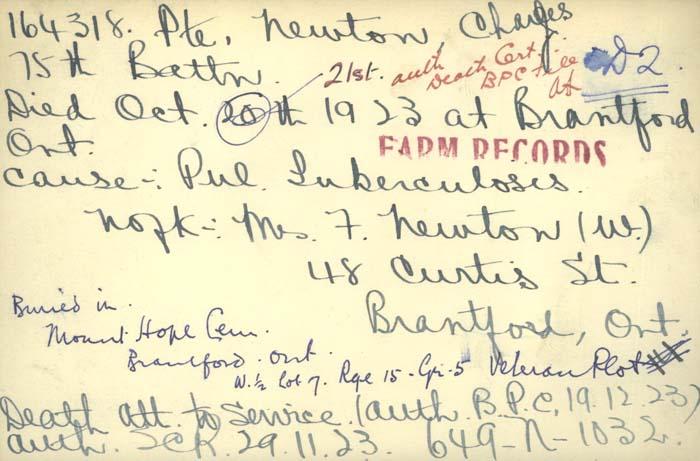 164318. Pte, Newton, Charles
75th Battn.
21st. auth Death Cert.
BPC
D2
Died Oct. 20th 1923 at Brantford
Ont.
FARM RECORDS
Cause:- Pul. Tuberculosis.
Nofk:- Mrs. F. Newton (W.)
48 Curtis St.
Brantford, Ont.
Buried in.
Mount Hope Cem.
Brantford. Ont.
W.½ Lot 7. Rge 15 - Gr-5 Veteran Plot
Death att. to Service. (auth. B.P.C. 19.12.23)
auth. 29.11.23. 649-N-1032.